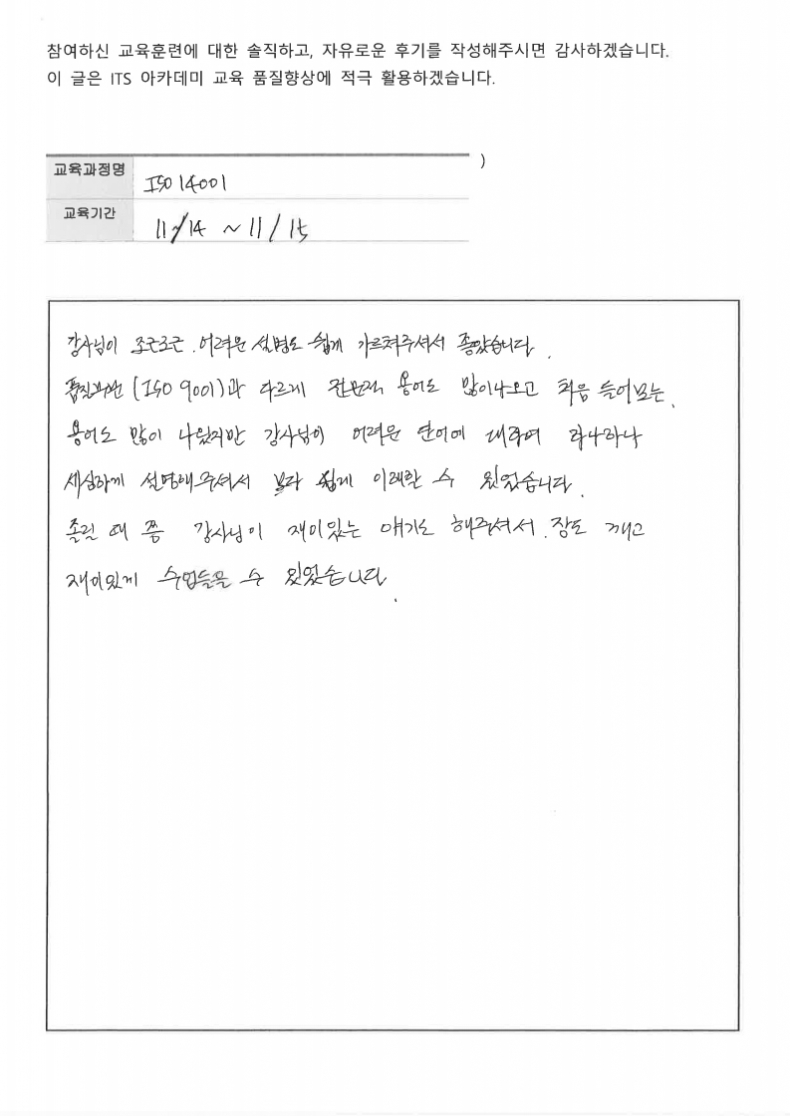 참여하신 교육훈련에 대한 솔직하고, 자유로운 후기를 작성해주시면 감사하겠습니다.
이 글은 ITS 아카데미 교육 품질향상에 적극 활용하겠습니다.
)
교육과정명 ISO 14001
교육기간 11/14 ~ 11/15
강사님이 조근조근 어려운 설명도 쉽게 가르쳐주셔서 좋았습니다.
(ISO 9001)과 다르게 전문적 용어도 많이나오고 처음 들어보는
용어도 많이 나왔지만 강사님이 어려운 단어에 대하여 하나하나
세심하게 설명해주셔서 보다 쉽게 이해할 수 있었습니다.
졸릴 때 쯤 강사님이 재미있는 얘기도 해주셔서 잠도 깨고
재미있게 수업들을 수 있었습니다.